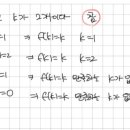 k가 2개이다 참
⇒ f(k)=k k=1
⇒ f(k)=k k=2
⇒ f(k)=k 만족하는 k가 없
=0 ⇒ f(k)=k 만족하는 k가 없